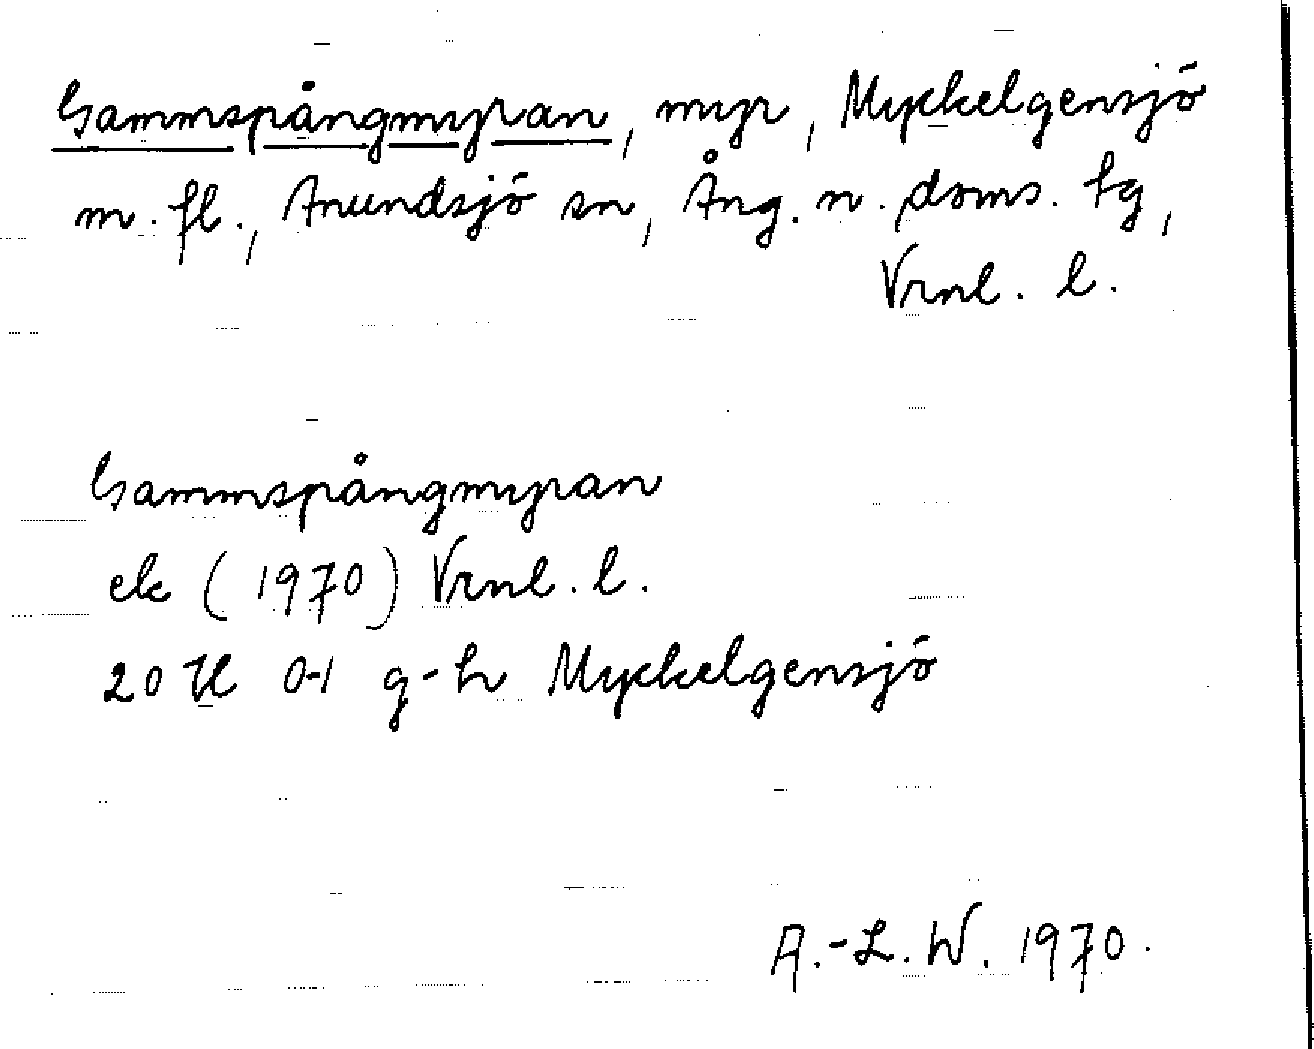 Gammspångmyran, myr, Myckelgensjö
m. fl., Anundsjö sn, Ång. n. doms. tg,
Vrnl. l.
Gammspångmyran
ek (1970) Vrnl. l.
20 H 0-1 g-h Myckelgensjö
A.-L. W. 1970.